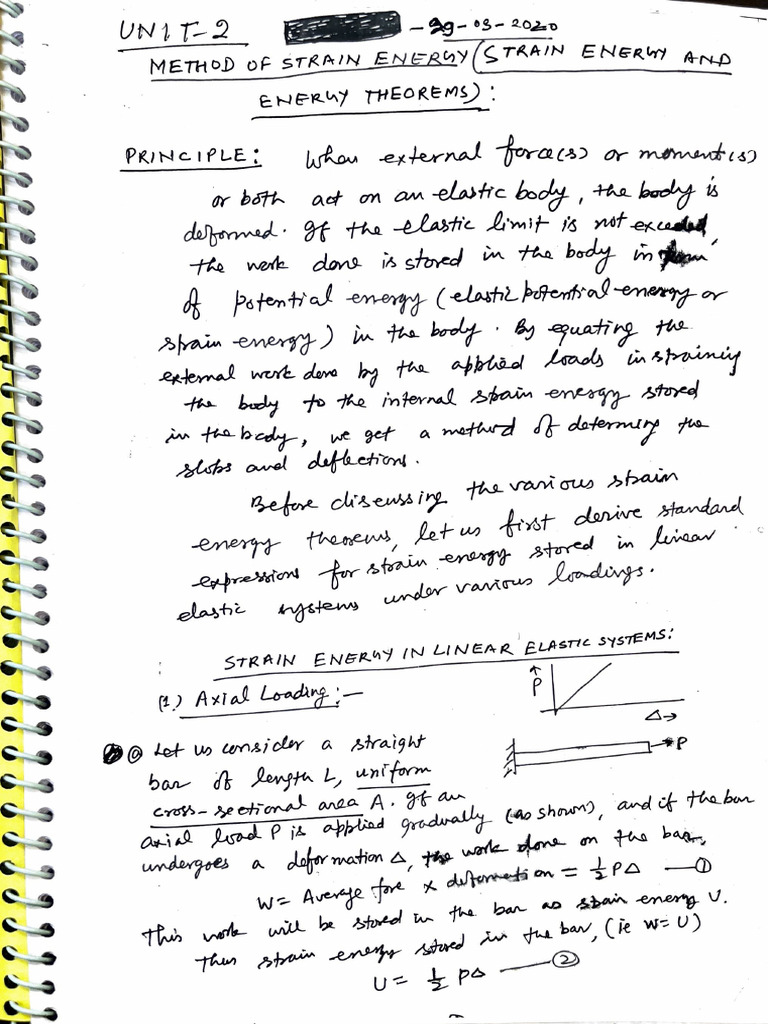 UNIT-2 -29-03-2020
METHOD OF STRAIN ENERGY (STRAIN ENERGY AND
ENERGY THEOREMS):
PRINCIPLE: When external force(s) or moment(s)
or both act on an elastic body, the body is
deformed. If the elastic limit is not exceeded,
the work done is stored in the body in form
of potential energy (elastic potential energy or
strain energy) in the body. By equating the
external work done by the applied loads in straining
the body to the internal strain energy stored
in the body, we get a method of determing the
slobs and deflections.
Before discussing the various strain
energy theorems, let us first derive standard
expressions for strain energy stored in linear
elastic systems under various loadings.
STRAIN ENERGY IN LINEAR ELASTIC SYSTEMS:
(1.) Axial Loading:-
P
Δ→
P
@ Let us consider a straight
bar of length L, uniform
cross-sectional area A. If an
axial load P is applied gradually (as shown), and if the bar
undergoes a deformation Δ, the work done on the bar,
W = Average force × deformation = 1/2 PΔ — ①
This work will be stored in the bar as strain energy U.
Thus strain energy stored in the bar, (ie W=U)
U = 1/2 PΔ — ②